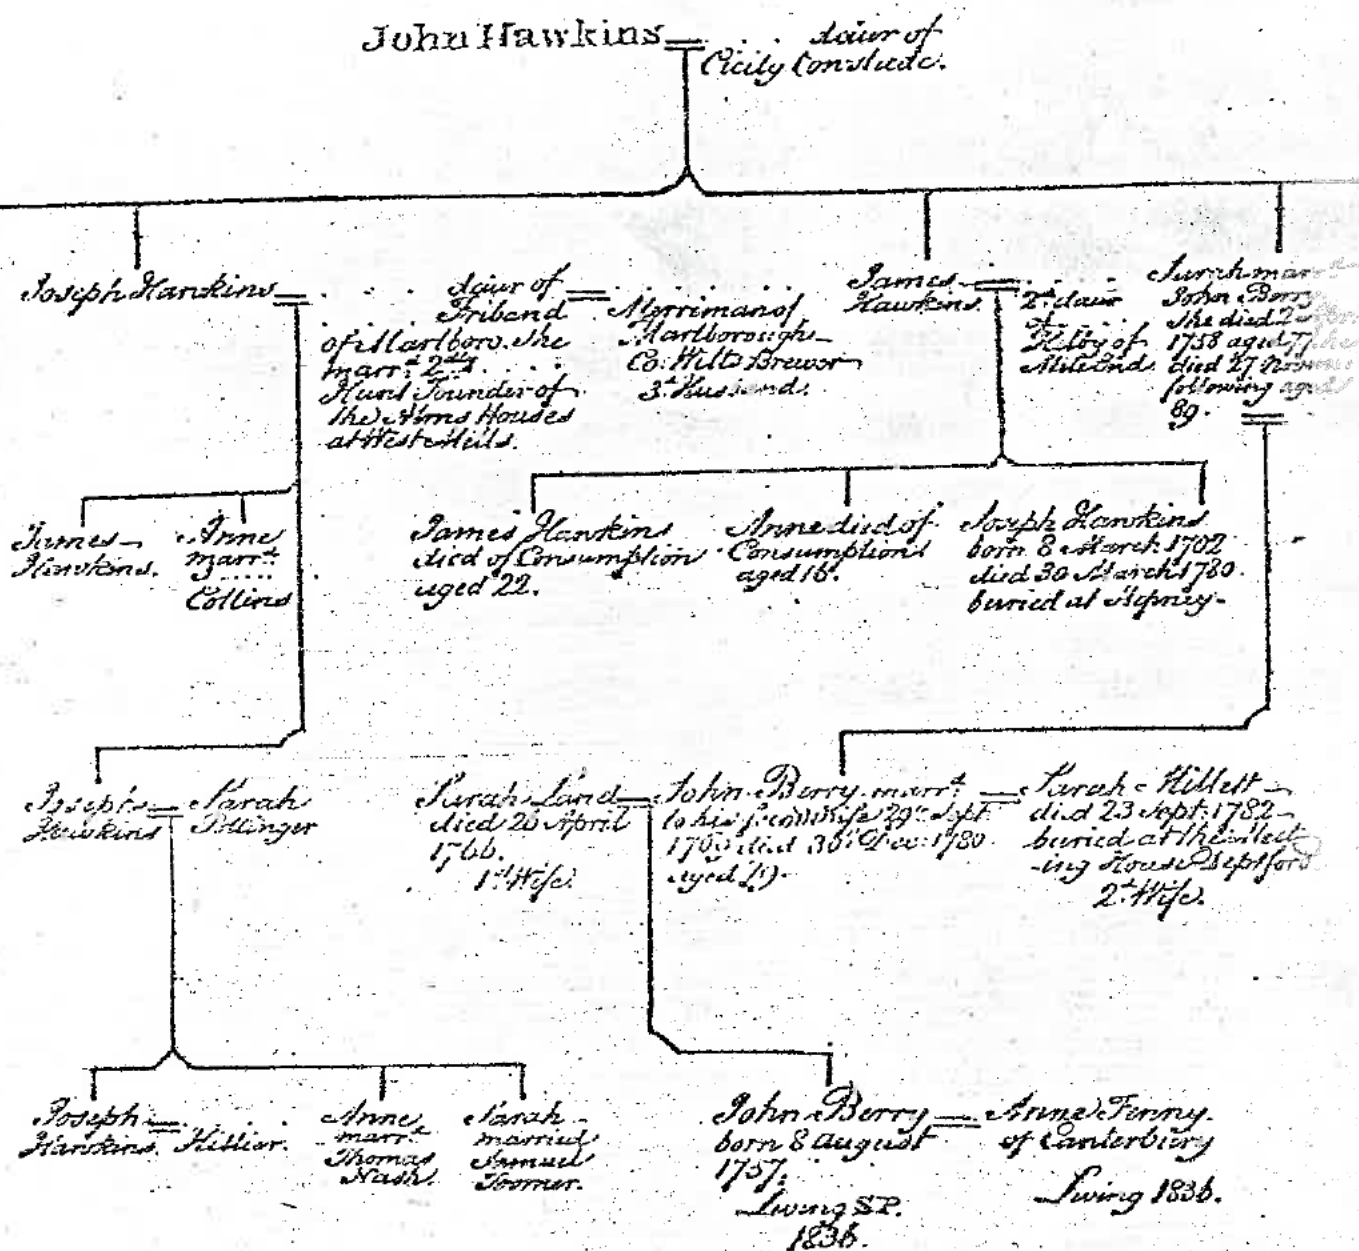 John Hawkins
. . . daur of
Cicily
Joseph Hawkins
. . . . daur of
Friband
of Marlboro. she
marrd 2dly . . . .
Hunt Founder of
the Alms Houses
at West Mills.
. . . . . . .
Merriman of
Marlborough
Co: Wilts Brewer
3d Husband.
James
Hawkins.
. . . . .
2d daur
of . . . .
of
Mile End
Sarah mar
John Berry
she died 2
1758 aged 77. he
died 27
following aged
89.
James
Hawkins.
Anne
marrd
.....
Collins
James Hawkins
died of Consumption
aged 22.
Anne died of
Consumption
aged 16.
Joseph Hawkins
born 8 March 1702
died 30 March 1780.
buried at Stepney
Joseph
Hawkins
Sarah
Pottinger
Sarah Land
died 26 April
1766.
1st Wife.
John Berry marrd
to his second Wife 29th Sept
died 30th Dec: 1780
aged
Sarah Hillett
died 23 Sept: 1782
buried at the Meet
-ing House Deptford
2d Wife.
Joseph
Hawkins.
. . . . .
Hillier.
Anne
marrd
Thomas
Nash.
Sarah
married
Samuel
Toomer.
John Berry
born 8 August
1757.
Living SP.
1836.
Anne Finny
of Canterbury
Living 1836.